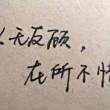 义无反顾，
在所不惜